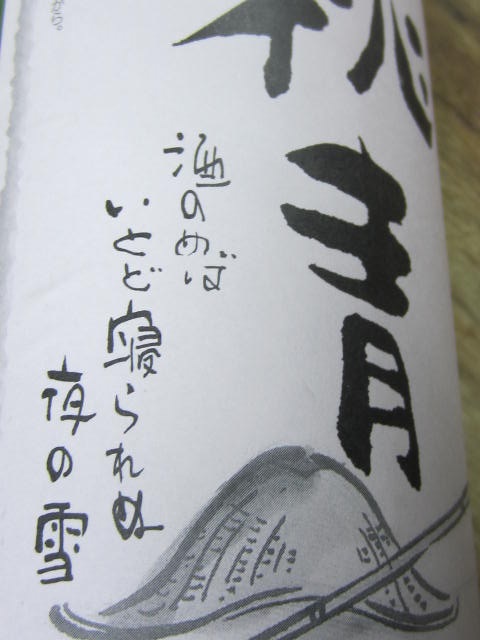 桃青
酒のめば
いとど寝られぬ
夜の雪